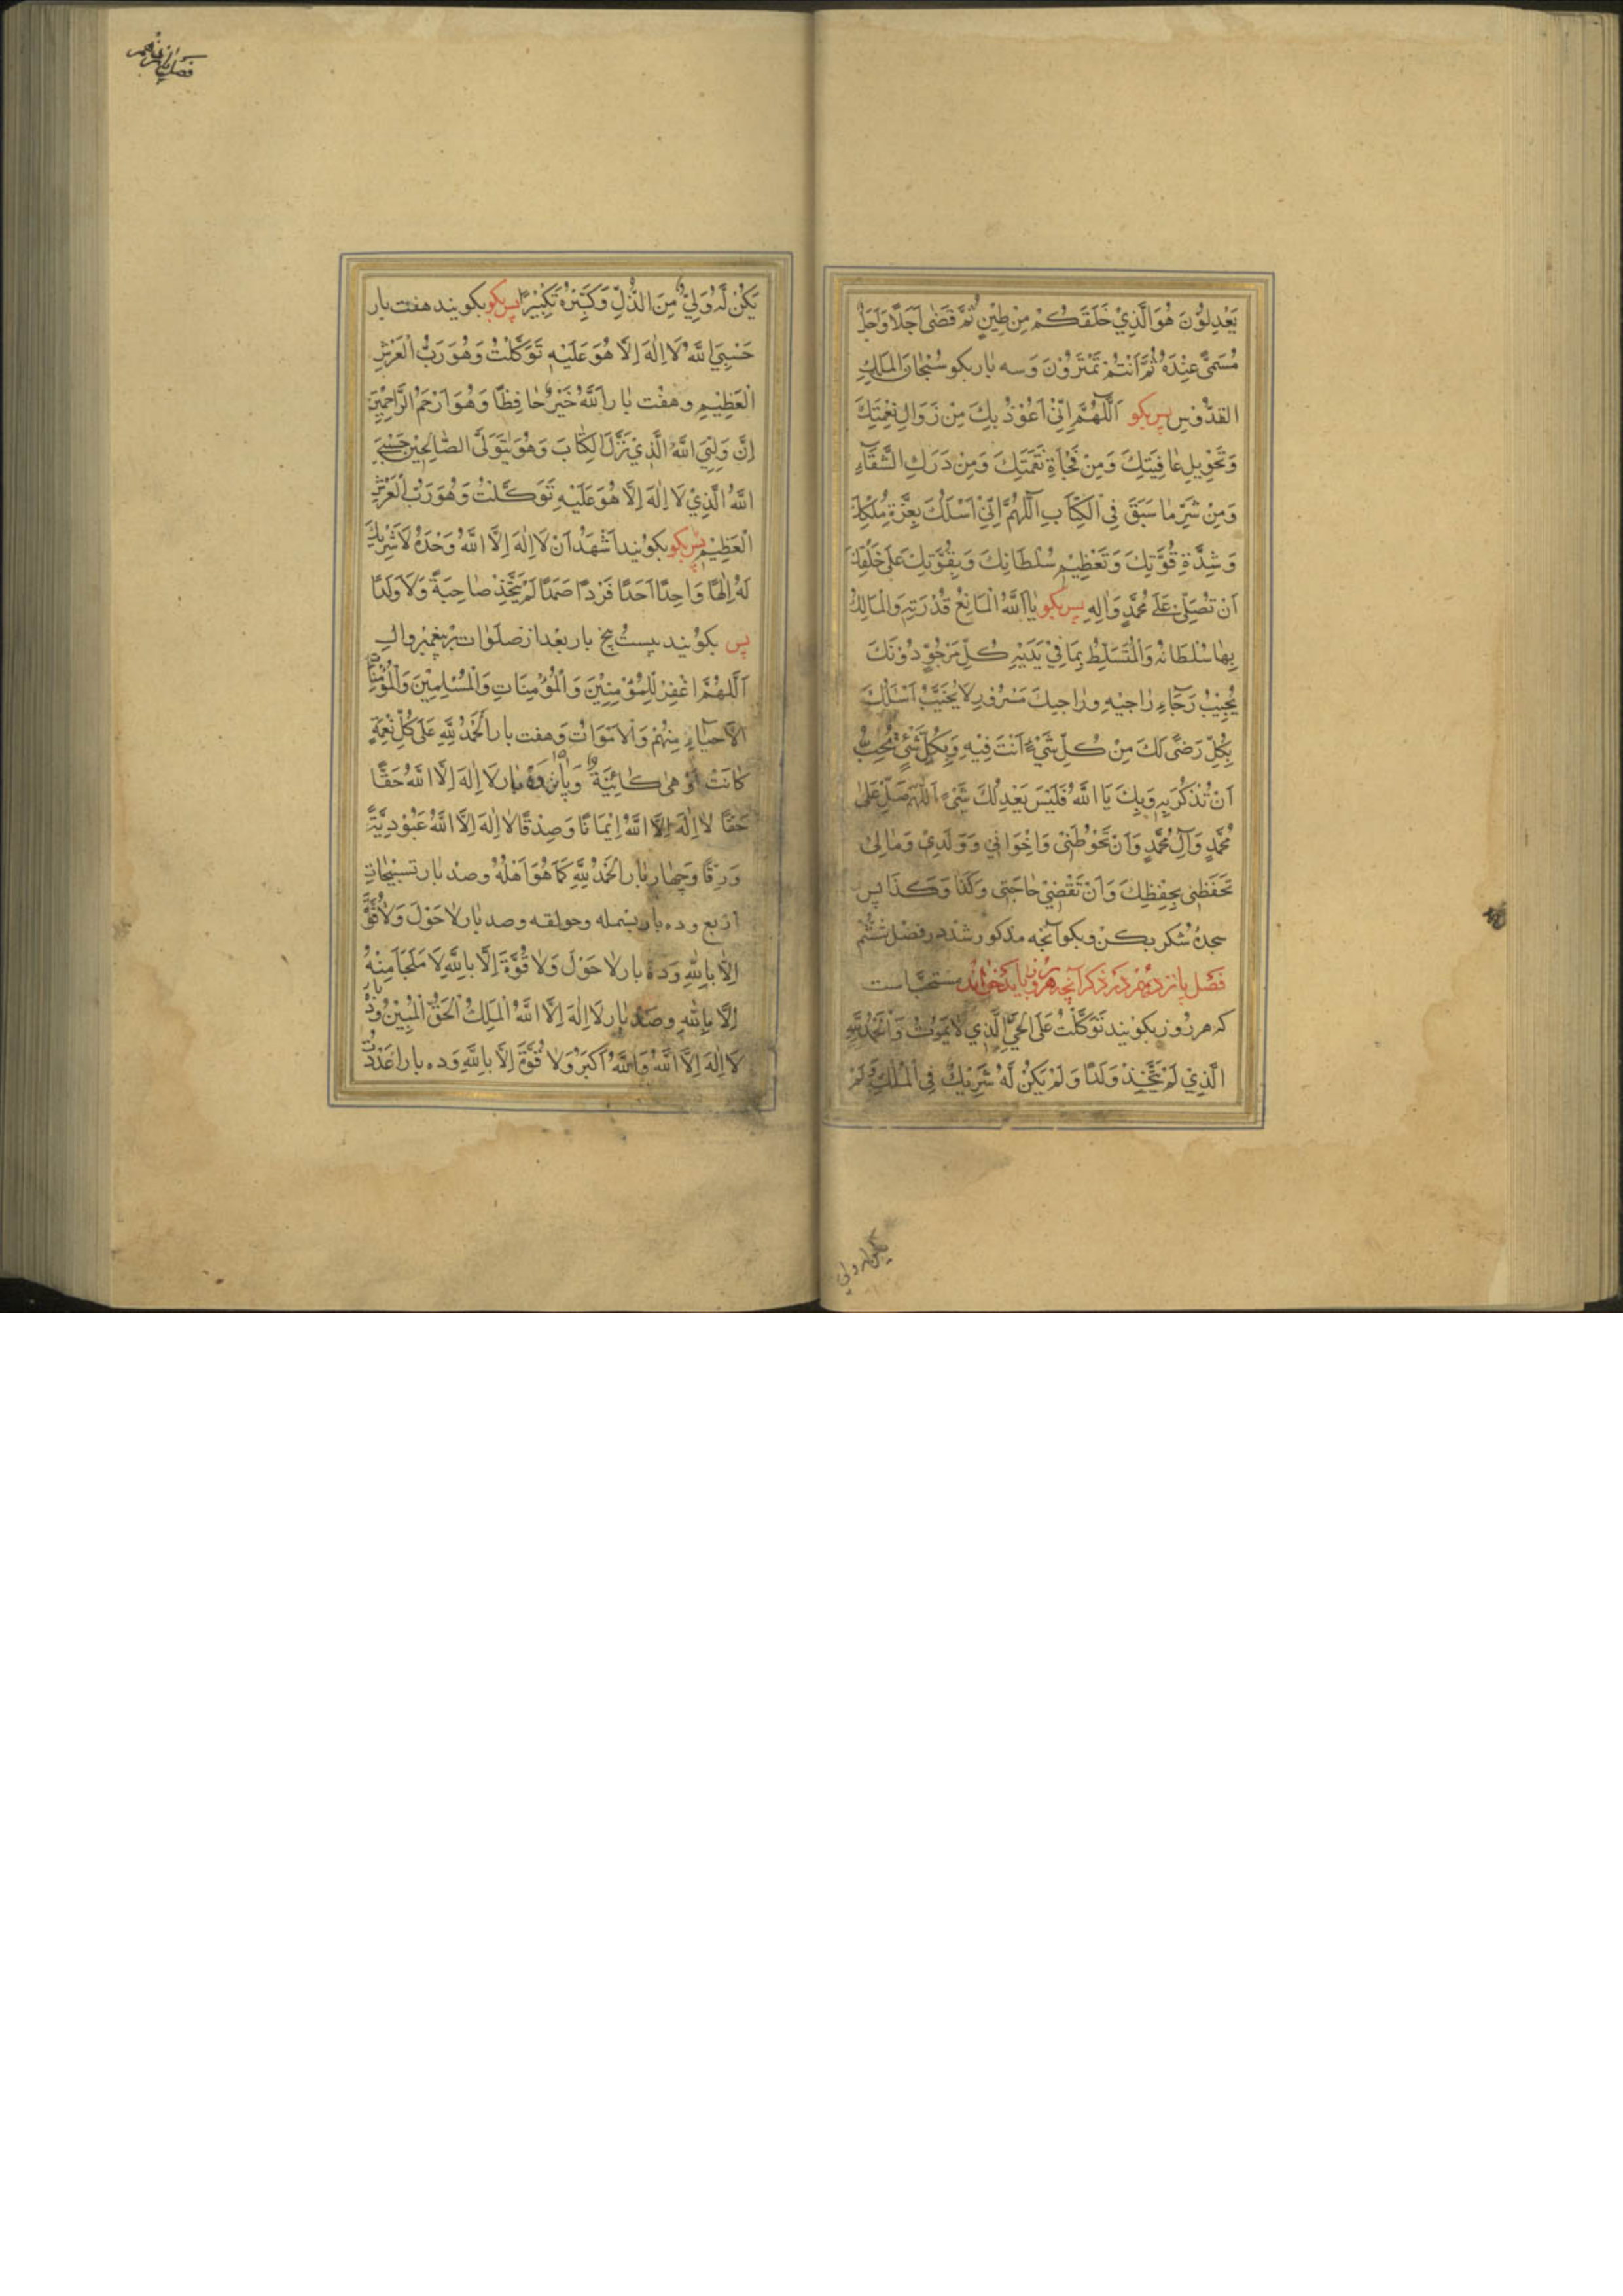 يَعْدِلُوْنَ هُوَ الَّذِيْ خَلَقَكُمْ مِنْ طِيْنٍ ثُمَّ قَضٰى اَجَلًا وَاَجَلٌ
مُسَمًّى عِنْدَهُ ثُمَّ اَنْتُمْ تَمْتَرُوْنَ وَسه بار بكو سُبْحَانَ الْمَلِكِ
القدّوسِ پس بكو اَللّٰهُمَّ اِنِّيْ اَعُوْذُ بِكَ مِنْ زَوَالِ نِعْمَتِكَ
وَتَحْوِيلِ عَافِيَتِكَ وَمِنْ فَجْأَةِ نَقِمَتِكَ وَمِنْ دَرَكِ الشَّقَآءِ
وَمِنْ شَرِّ مَا سَبَقَ فِي الْكِتَابِ اَللّٰهُمَّ اِنِّيْ اَسْئَلُكَ بِعِزَّةِ مُلْكِكَ
وَشِدَّةِ قُوَّتِكَ وَتَعْظِيْمِ سُلْطَانِكَ وَبِقُوَّتِكَ عَلَى خَلْقِكَ
اَنْ تُصَلِّيَ عَلٰى مُحَمَّدٍ وَاٰلِهِ پس بكو يَا اَللّٰهُ الْمَانِعُ قُدْرَتِهِ وَالْمَالِكُ
بِهَا سُلْطَانُهُ وَالْمُتَسَلِّطُ بِمَا فِيْ يَدَيْهِ كُلُّ مَرْجُوٍّ دُوْنَكَ
يُخَيِّبُ رَجَاءَ رَاجِيْهِ وَرَاجِيكَ مَسْرُوْرٌ لَا يُخَيَّبُ اَسْئَلُكَ
بِكُلِّ رَضًى لَكَ مِنْ كُلِّ شَيْءٍ اَنْتَ فِيْهِ وَبِكُلِّ شَيْءٍ تُحِبُّ
اَنْ تُذْكَرَ بِهِ وَبِكَ يَا اَللّٰهُ فَلَيْسَ يَعْدِلُكَ شَيْءٌ اَللّٰهُمَّ صَلِّ عَلٰى
مُحَمَّدٍ وَآلِ مُحَمَّدٍ وَاَنْ تَحُوْطَنِيْ وَاِخْوَانِي وَوَلَدِيْ وَمَالِيْ
تَحْفَظَنِي بِحِفْظِكَ وَاَنْ تَقْضِيَ حَاجَتِي وَكَذَا وَكَذَا پس
سجدهٔ شكر بكن وبكو آنچه مذكور شد در فصل ششم
فَصل يازدهم در ذكر آنچه هر روز بايد خواند مستحبّ است
كه هر روز بكويند تَوَكَّلْتُ عَلَى الْحَيِّ الَّذِي لَا يَمُوْتُ وَالْحَمْدُ لِلّٰهِ
الَّذِيْ لَمْ يَتَّخِذْ وَلَدًا وَلَمْ يَكُنْ لَهُ شَرِيْكٌ فِي الْمُلْكِ وَلَمْ
يَكُنْ لَهُ وَلِيٌّ مِنَ الذُّلِّ وَكَبِّرْهُ تَكْبِيْرًا پس بكو بكويند هفت بار
حَسْبِيَ اللّٰهُ لَا اِلٰهَ اِلَّا هُوَ عَلَيْهِ تَوَكَّلْتُ وَهُوَ رَبُّ الْعَرْشِ
الْعَظِيْمِ وهفت بار اَللّٰهُ خَيْرٌ حَافِظًا وَهُوَ اَرْحَمُ الرَّاحِمِيْنَ
اِنَّ وَلِيِّيَ اللّٰهُ الَّذِيْ نَزَّلَ الْكِتَابَ وَهُوَ يَتَوَلَّى الصَّالِحِيْنَ حَسْبِيَ
اللّٰهُ الَّذِيْ لَا اِلٰهَ اِلَّا هُوَ عَلَيْهِ تَوَكَّلْتُ وَهُوَ رَبُّ الْعَرْشِ
الْعَظِيْمِ پس بكو بكويند اَشْهَدُ اَنْ لَا اِلٰهَ اِلَّا اللّٰهُ وَحْدَهُ لَا شَرِيْكَ
لَهُ اِلٰهًا وَاحِدًا اَحَدًا فَرْدًا صَمَدًا لَمْ يَتَّخِذْ صَاحِبَةً وَلَا وَلَدًا
پس بكويند بيست پنج بار بعد از صلوات بر پيغمبر وآل
اَللّٰهُمَّ اغْفِرْ لِلْمُؤْمِنِيْنَ وَالْمُؤْمِنَاتِ وَالْمُسْلِمِيْنَ وَالْمُؤْمِنَاتِ
الْاَحْيَاءِ مِنْهُمْ وَالْاَمْوَاتِ وَهفت بار اَلْحَمْدُ لِلّٰهِ عَلٰى كُلِّ نِعْمَةٍ
كَانَتْ اَوْ هِيَ كَائِنَةٌ وپانزده بار لَا اِلٰهَ اِلَّا اللّٰهُ حَقًّا
حَقًّا لَا اِلٰهَ اِلَّا اللّٰهُ اِيْمَانًا وَصِدْقًا لَا اِلٰهَ اِلَّا اللّٰهُ عُبُوْدِيَّةً
وَرِقًّا وَچهار بار الْحَمْدُ لِلّٰهِ كَمَا هُوَ اَهْلُهُ وصد بار تسبيحات
اربع وده بار بسمله وحولقه وصد بار لَا حَوْلَ وَلَا قُوَّةَ
اِلَّا بِاللّٰهِ وَده بار لَا حَوْلَ وَلَا قُوَّةَ اِلَّا بِاللّٰهِ لَا مَلْجَأَ مِنْهُ
اِلَّا بِاللّٰهِ وصد بار لَا اِلٰهَ اِلَّا اللّٰهُ الْمَلِكُ الْحَقُّ الْمُبِيْنُ وده بار
لَا اِلٰهَ اِلَّا اللّٰهُ وَاللّٰهُ اَكْبَرُ وَلَا قُوَّةَ اِلَّا بِاللّٰهِ وَده بار اَعْدَدْتُ